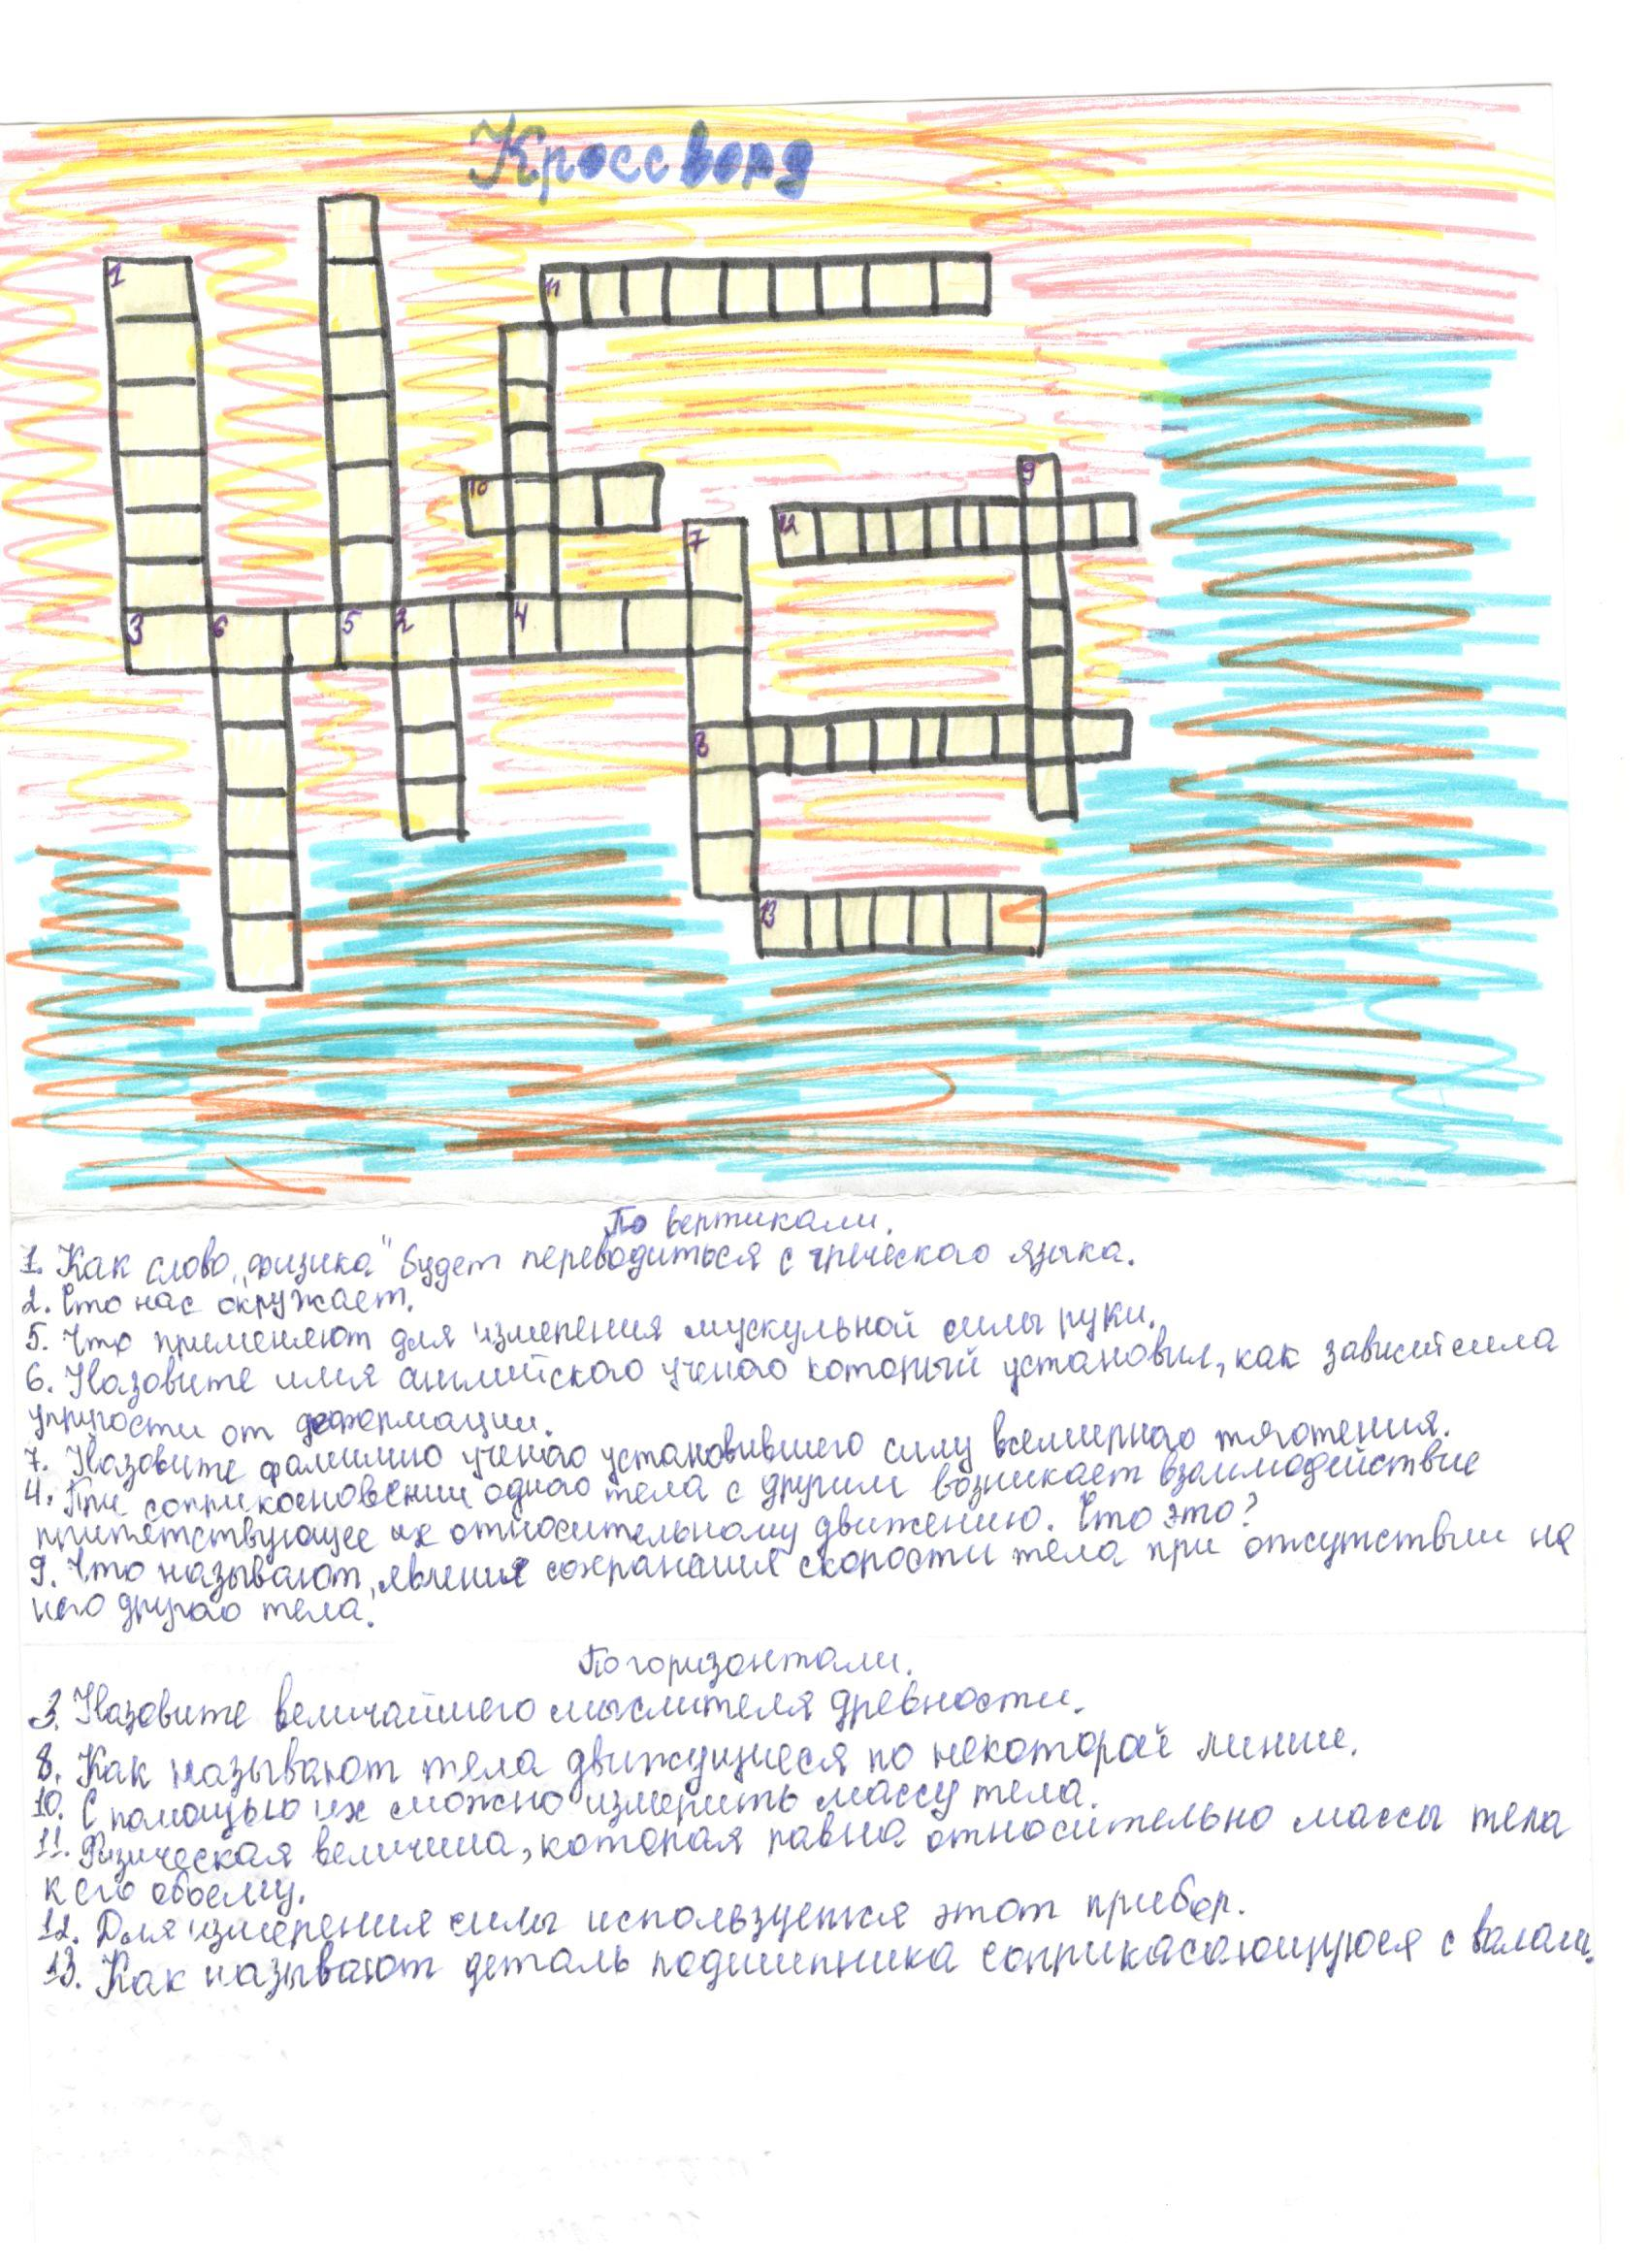 Кроссворд
1
11
9
10
12
7
3 6 5 2 4
8
13
По вертикали.
1. Как слово „физика" будет переводиться с греческого языка.
2. Что нас окружает.
5. Что применяют для измерения мускульной силы руки.
6. Назовите имя английского ученого который установил, как зависит сила
упругости от деформации.
7. Назовите фамилию ученого установившего силу всемирного тяготения.
4. При соприкосновении одного тела с другим возникает взаимодействие
припятствующее их относительному движению. Что это?
9. Что называют, явления сохранения скорости тела при отсутствии на
него другого тела.
По горизонтали.
3. Назовите величайшего мыслителя древности.
8. Как называют тела движущиеся по некоторой линии.
10. С помощью их можно измерить массу тела.
11. Физическая величина, которая равна относительно массы тела
к его объему.
12. Для измерения силы используется этот прибор.
13. Как называют деталь подшипника соприкасающуюся с валами.